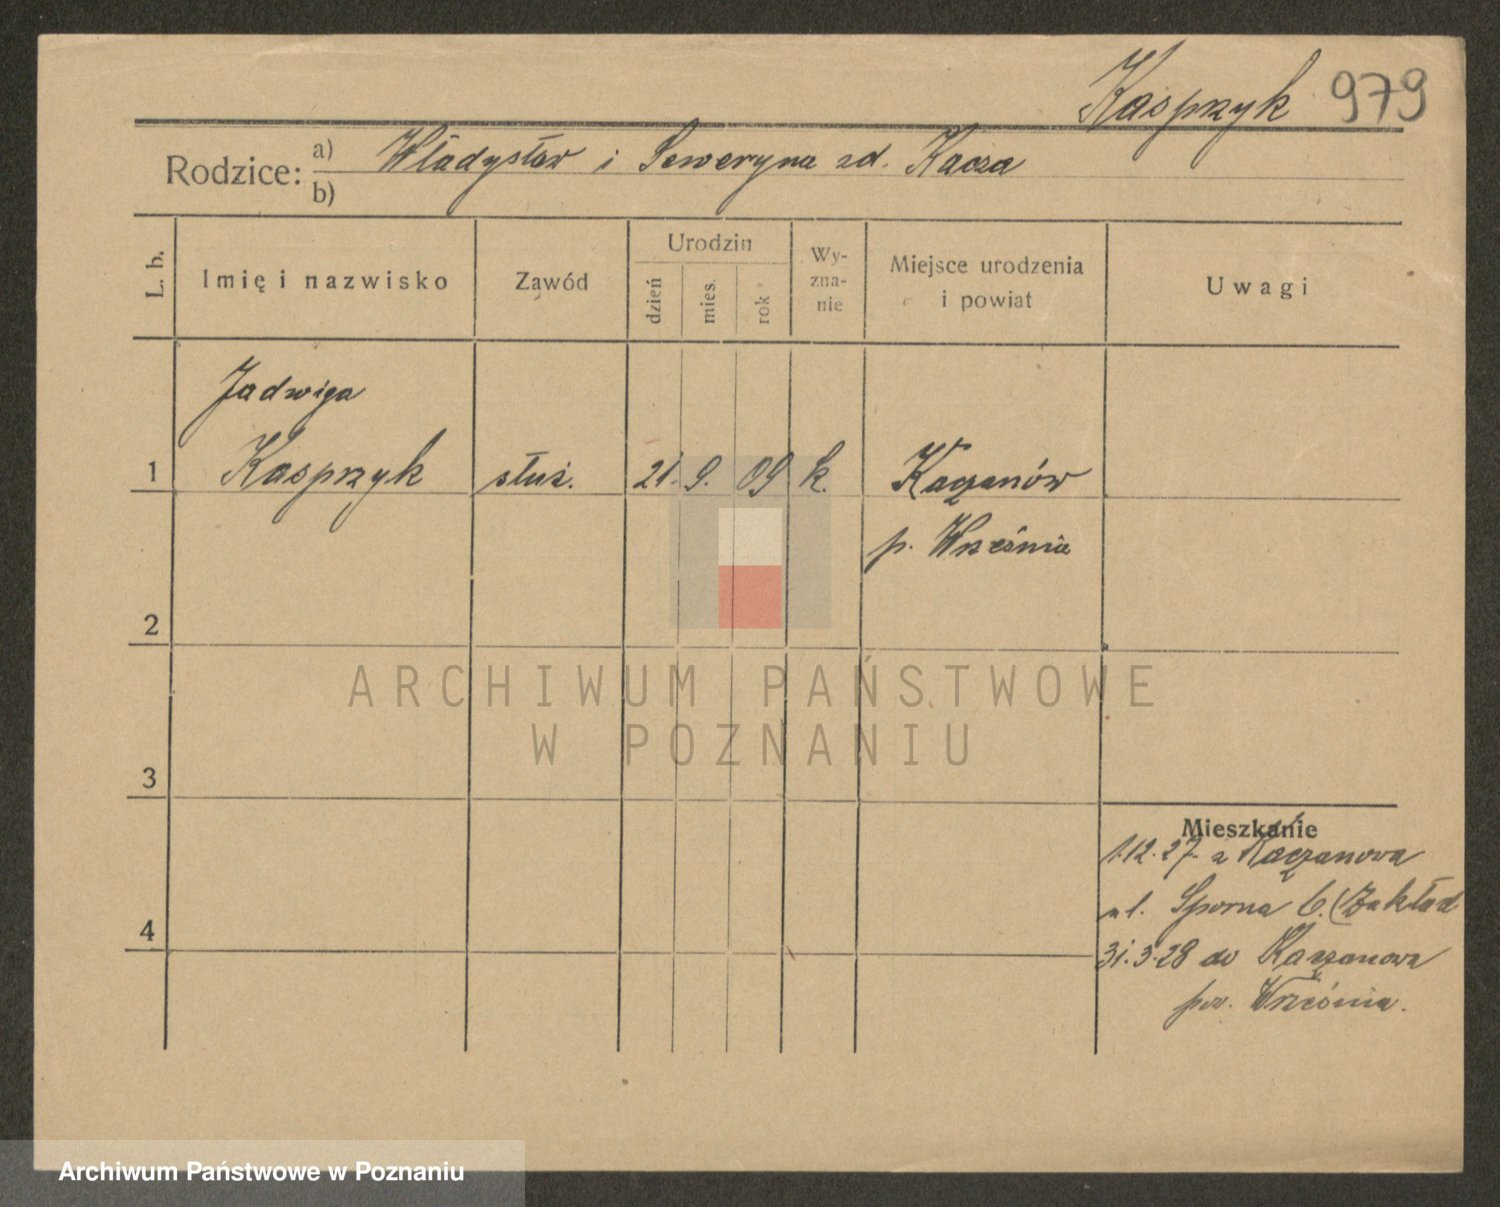 Kasprzyk 979
Rodzice: a) Władysław i Seweryna zd. Kacza
b)
L. b.
Imię i nazwisko
Zawód
Urodzin
dzień
mies.
rok
Wy-
zna-
nie
Miejsce urodzenia
i powiat
Uwagi
Jadwiga
1 Kasprzyk służ. 21. 9. 09 k. Kaczanów
p. Września
2
3
4
Mieszkanie
1.12.27. z Kaczanowa
ul. Sporna 6. (Zakład
31.3.28 do Kaczanowa
pow. Września.
ARCHIWUM PAŃSTWOWE
W POZNANIU
Archiwum Państwowe w Poznaniu